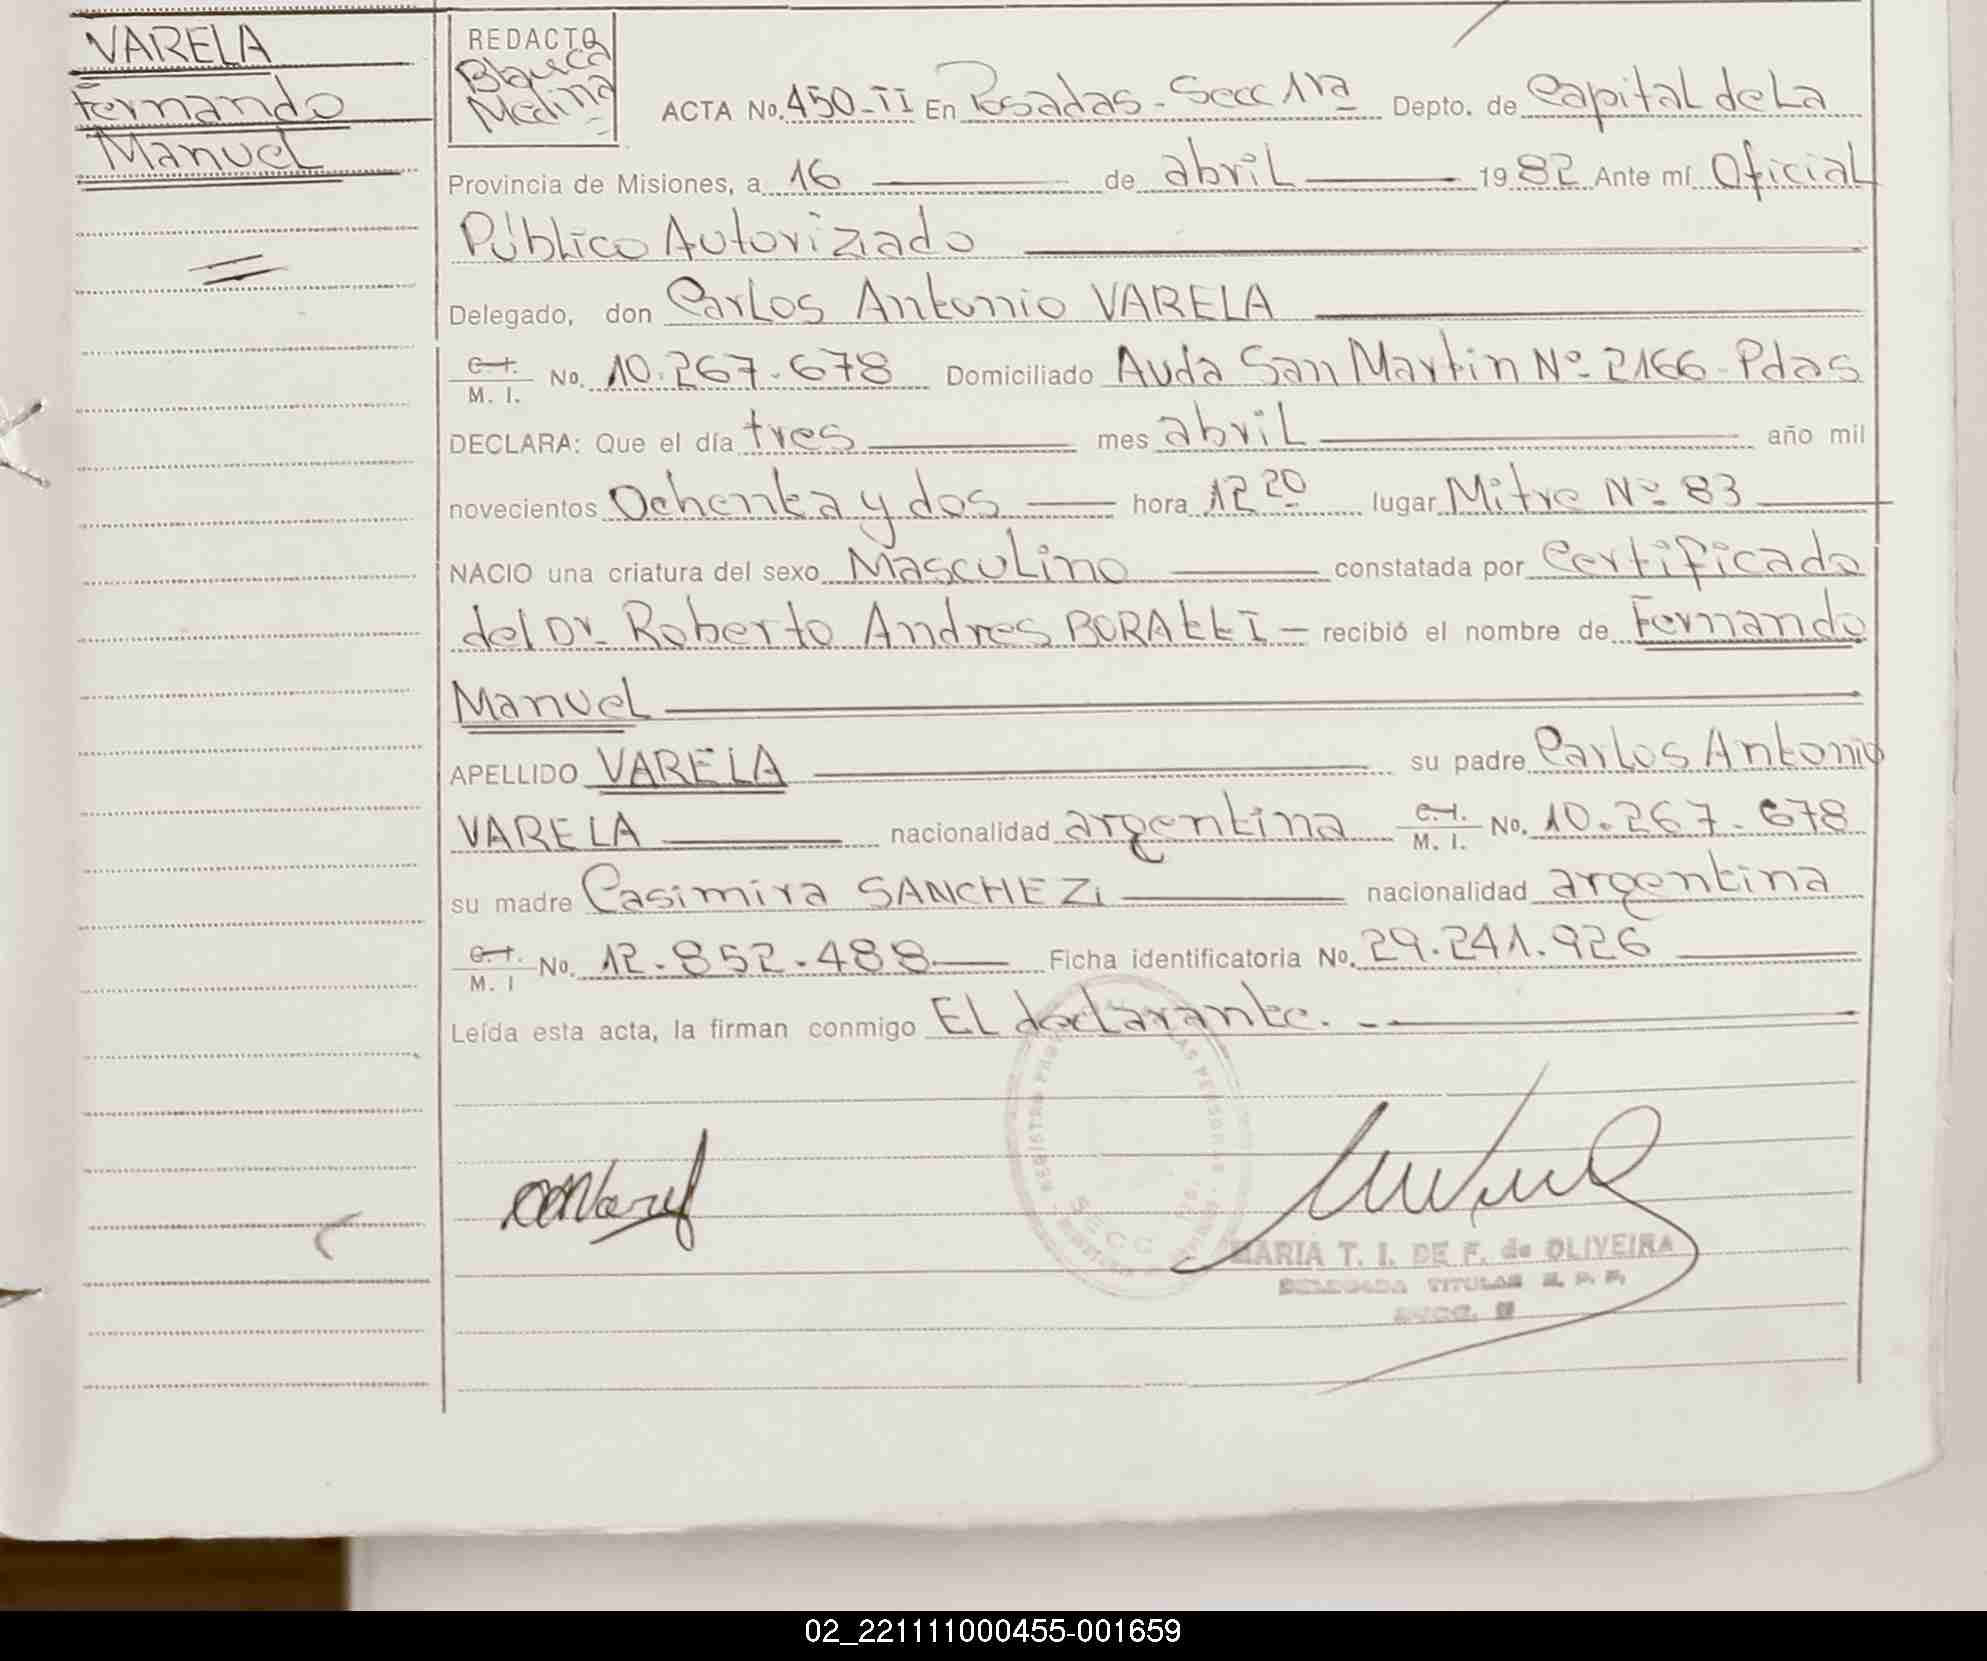 VARELA
Fernando
Manuel
REDACTO
Blanca
Medina
ACTA No. 450-II En Posadas - Secc 1ra Depto. de Capital de La
Provincia de Misiones, a 16 de abril 1982 Ante mí Oficial
Público Autorizado
Delegado, don Carlos Antonio VARELA
C.I. M. I. No. 10.267.678 Domiciliado Avda San Martin Nº 2166 - Pdas
DECLARA: Que el día tres mes abril año mil
novecientos Ochenta y dos hora 12 20 lugar Mitre Nº 83
NACIO una criatura del sexo Masculino constatada por Certificado
del Dr. Roberto Andres BORATTI - recibió el nombre de Fernando
Manuel
APELLIDO VARELA su padre Carlos Antonio
VARELA nacionalidad argentina C.I. M. I. No. 10.267.678
su madre Casimira SANCHEZ nacionalidad argentina
C.I. M. I No. 12.852.488 Ficha identificatoria No. 29.241.926
Leída esta acta, la firman conmigo El declarante.
MARIA T. I. DE F. de OLIVEIRA
DELEGADA TITULAR R. P. P.
02_221111000455-001659